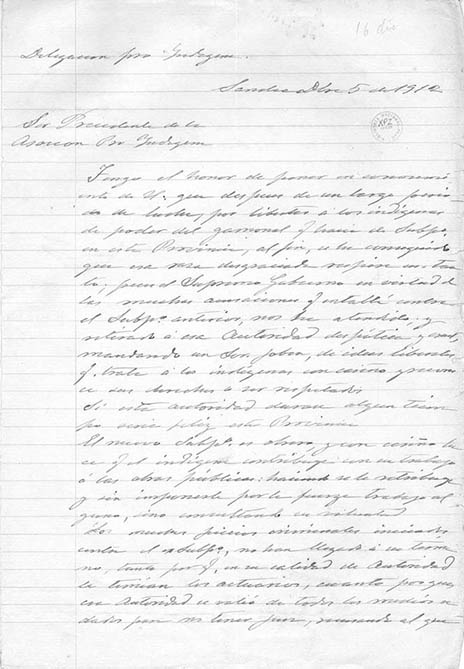 16 dic
Delegacion pro Indigena.
Sandia Dbre 5 de 1912
Sor Presidente de la
Asocion Pro Indigena
Tengo el honor de poner en conocimi
ento de U. que despues de un largo perio
do de lucha, por libertar a los indígenas
de poder del gamonal q hacia de Subpo
en esta Provincia, al fin, se ha conseguido
que esa raza desgraciada respire un tan
to; pues el Supremo Gobierno en virtud de
las muchas acusaciones q entablé contra
el Subpo anterior, nos ha atendido: y
retirado á esa Autoridad despótica y
mandando un Sor Jobra, de ideas liberales
q. trata á los indígenas con cariño y recono
ce sus derechos a ser respetados
Si esta autoridad durase algun tiem
po seria feliz esta Provincia
El nuevo Subpo es obrero y con cariño ha
ce q el indígena contribuya con su trabajo
á las obras publicas: haciendo se le retribuya
y sin imponerle por la fuerza trabajo al
guno, sino consultando su voluntad
Los muchos juicios criminales iniciados
contra el ex Subpo, no han llegado á su térmi
no, tanto por q, en su calidad de Autoridad
le temian los actuarios, cuanto por que
esa Autoridad se valió de todos los medios ve
dados para no tener Juez, recusando al que